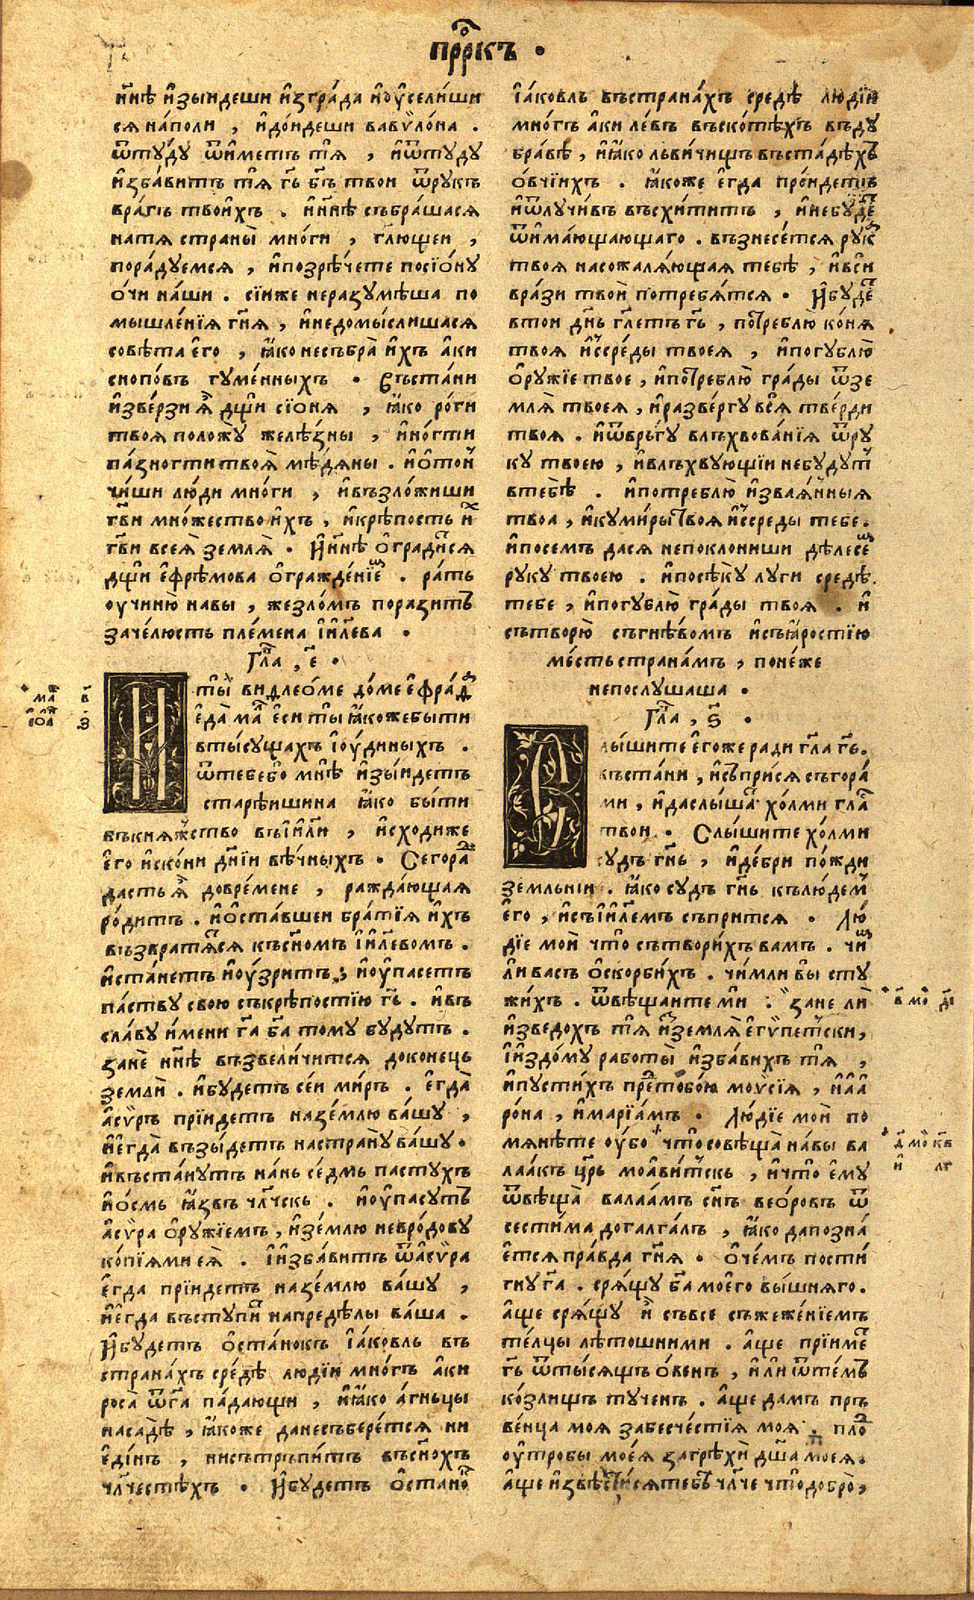 прⷪ҇ркъ .
нн҃ѣ и҆зыидеши и҆згра́да и҆оу҆сели́ши
ся на́поли , и҆до́идеши вавѷло́на .
ѿту́ду ѿи҆метъ тѧ̀ , и҆ѿту́ду
и҆зба́витъ тѧ̀ гь҃ бг҃ъ твои ѿрукъ
враѓъ твои́хъ . и҆нн҃ѣ събра́шася
натя страны̀ мно́ги , гл҃ющеи ,
пора́дуемся , и҆позрѣ́чете посїо́ну
о́чи на́ши . сїиже неразумѣ́ша по
мышле́нїя гн҃я , и҆недомы́слишася
совѣ́та его̀ , ꙗ҆ко несъбра̀ и҆хъ а҆ки
снопо́въ гуме́нныхъ . Въста́ни
и҆збе́рзи ꙗ҆̀ дщи҃ сїо́ня , ꙗ҆ко ро́ги
твоя положу̀ желѣ́зны , и҆но́гти
па́зногти твоя̀ мѣ́дяны . и҆о҆тон
чи́ши лю́ди мно́ги , и҆възложи́ши
гв҃и мно́жество и҆́хъ , и҆крѣ́пость и҆хъ
гв҃и всея̀ земля̀ . И҆нн҃ѣ о҆гради́ся
дщи҃ е҆фре́мова о҆гражде́нїемъ . ра́ть
оучиню̀ на́вы , жезло́мъ поразитъ
заче́люсть пле́мена і҆и҃лева .
Гла҃ , е҃ .
И ты̀ видлео́ме до́ме е҆фра́д
е҆да̀ ма́лъ е҆си ты̀ ꙗ҆́коже быти
вты́сущахъ і҆оу́диныхъ .
ѿтебе бо мнѣ̀ и҆зы́идетъ
старѣ́ишина ꙗ҆́ко бы́ти
въкня́жество въі҆и҃ли , и҆схо́диже
е҆го̀ и҆ско́ни дн҃їи вѣ́чныхъ . Сегора
дасть ꙗ҆̀ довре́мене , ражда́ющая
ро́дитъ . и҆о҆ста́вшеи бра́тїя и҆́хъ
възвратя́ся късн҃омъ і҆и҃левомъ .
и҆станетъ и҆оу҆́зритъ , и҆оу҆пасетъ
па́ству свою̀ съкрѣ́постїю гь҃ . и҆въ
сла́ву и҆мени га҃ ба҃ тому бу́дутъ .
занѐ нн҃ѣ възвели́чится доконець
землѝ . и҆будетъ се́и ми́ръ . е҆гда̀
а҆сѷ́ръ прїидетъ назе́млю ва́шу ,
и҆е҆гда̀ възы́детъ настра́ну ва́шу .
и҆въста́нутъ на́нь се́дмь пастухъ
и҆о҆смь ꙗ҆́звъ чл҃чскь . и҆оу҆пасутъ
а҆сѷ́ра о҆ру́жїемъ , и҆зе́млю невро́дову
ко́пїями ея̀ . І҆изба́витъ ѿа҆сѷра
е҆гда̀ прїидетъ назе́млю ва́шу ,
и҆е҆гда̀ въсту́питъ напредѣ́лы ва́ша .
И҆будетъ о҆ста́нокъ і҆а́ковль въ
страна́хъ средѣ̀ люді́и мно́гъ а҆́ки
роса̀ ѿга҃ па́дающи , и҆ꙗ҆ко а҆́гньцы
наса́дѣ , ꙗ҆́коже данесъбере́тся ни
е҆ди́нъ , нисътрьпитъ въсн҃охъ
чл҃честѣхъ . И҆бу́детъ о҆стано
і҆а́ковль въстрана́хъ средѣ̀ люді́и
мно́гъ а҆ки ле́въ въско́тѣхъ въду
бра́вѣ , и҆ꙗ҆ко льви́чищъ въста́дѣхъ
о҆вчїихъ . ꙗ҆коже е҆гда̀ про́идетъ
и҆ѿлучи́въ въсхи́титъ , и҆небу́детъ
ѿи҆ма́ющающаго . възнесе́тся рука
твоя насожаля́ющая тебѣ̀ , и҆вси
врази твоѝ потребя́тся . И҆бу́детъ
втои дн҃ь гл҃етъ гь҃ , потреблю̀ ко́ня
твоя и҆среды твоея , и҆погублю̀
о҆ру́жїе твое , и҆потреблю̀ гра́ды ѿзе
мля̀ твоея , и҆разве́ргу вся̀ тве́рди
твоя . и҆ѿвръ́гу влъхвова́нїя ѿру
ку твоею , и҆влъхву́ющїи небудутъ
втебѣ̀ . и҆потреблю̀ и҆звая́нныя
твоа , и҆куми́ры твоя и҆среды тебе .
и҆посемъ дася непоклониши дѣлесемъ
руку твоею . и҆посѣку лу́ги средѣ
тебе , и҆погублю̀ гра́ды твоя . и҆
сътворю̀ съгнѣ́вомъ и҆съꙗ҆́ростїю
ме́сть страна́мъ , поне́же
непослу́шаша .
Гла҃ , ѕ҃ .
Слы́шите е҆гоже ради гл҃а гь҃ .
въста́ни , и҆сприся съгора́
ми , и҆даслы́шатъ хо́лми гла́съ
твои . Слы́шите хо́лми
судъ гн҃ь , и҆де́бри по́жди
земльнїи . ꙗ҆ко судъ гн҃ь кълю́демъ
е҆го̀ , и҆съі҆и҃лемъ съпри́тся . Лю́
дїе моѝ что̀ сътвори́хъ вамъ . чи
ли васъ о҆скорби́хъ . чи́мли вы сту
жи́хъ . ѿвѣща́ите ми . зане ли
и҆зведо́хъ тя̀ и҆земля̀ е҆гѷпе́тски ,
І҆издо́му рабо́ты̀ и҆зба́вихъ тя̀ ,
и҆пусти́хъ претобо́ю моѷсїа , и҆а҆а
ро́на , и҆марїа́мъ . Лю́дїе моѝ по
мянѣ́те оу҆бо что̀ совѣща̀ на́вы ва
лаа́къ цр҃ь моа҆ви́тскь , и҆что̀ е҆му
ѿвѣща̀ валаа́мъ сн҃ъ вео́ровъ ѿ
сести́ма догалга́лъ , ꙗ҆ко дапозна́
е҆тся пра́вда гн҃я . О҆че́мъ пости́
гну га҃ . сря́щу ба҃ моего вы́шняго .
а҆ще сря́щу и҆̀ съвсе съжеже́нїемъ
те́лцы лѣ́тошними . а҆ще прїиме
гь҃ ѿты́сящъ о҆ве́нъ , и҆ли ѿте́мъ
ко́злищъ ту́ченъ . а҆ще дамъ пръ
ве́нца моя забесче́стїя моя . пло
оу҆тробы мое́я загрѣхѝ дш҃а моея .
а҆ще и҆звѣстися тебѣ чл҃че что̀ добро̀ ,